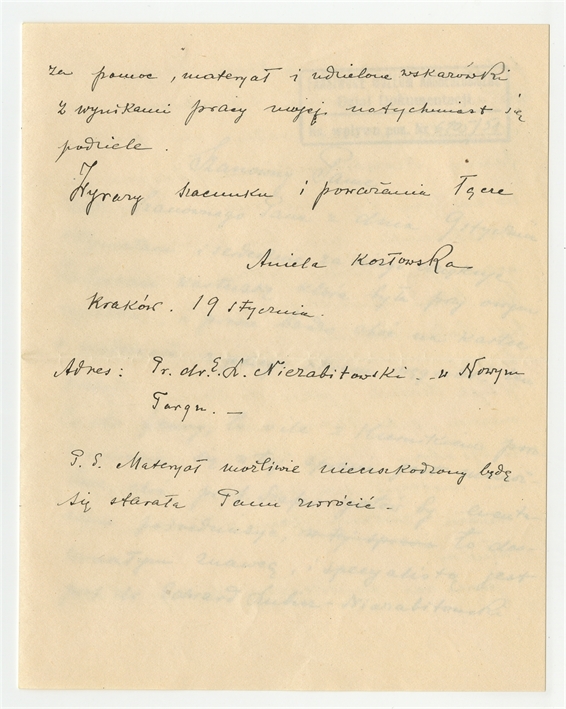 za pomoc, materyał i udzielone wskazówki
z wynikami pracy mojej natychmiast się
podzielę.
Wyrazy szacunku i poważania łączę
Aniela Kozłowska
Kraków. 19 stycznia.
Adres: Pr. dr. E. L. Niezabitowski. w Nowym
Targu. —
P. S. Materyał możliwie nieuszkodzony będę
się starała Panu zwrócić.